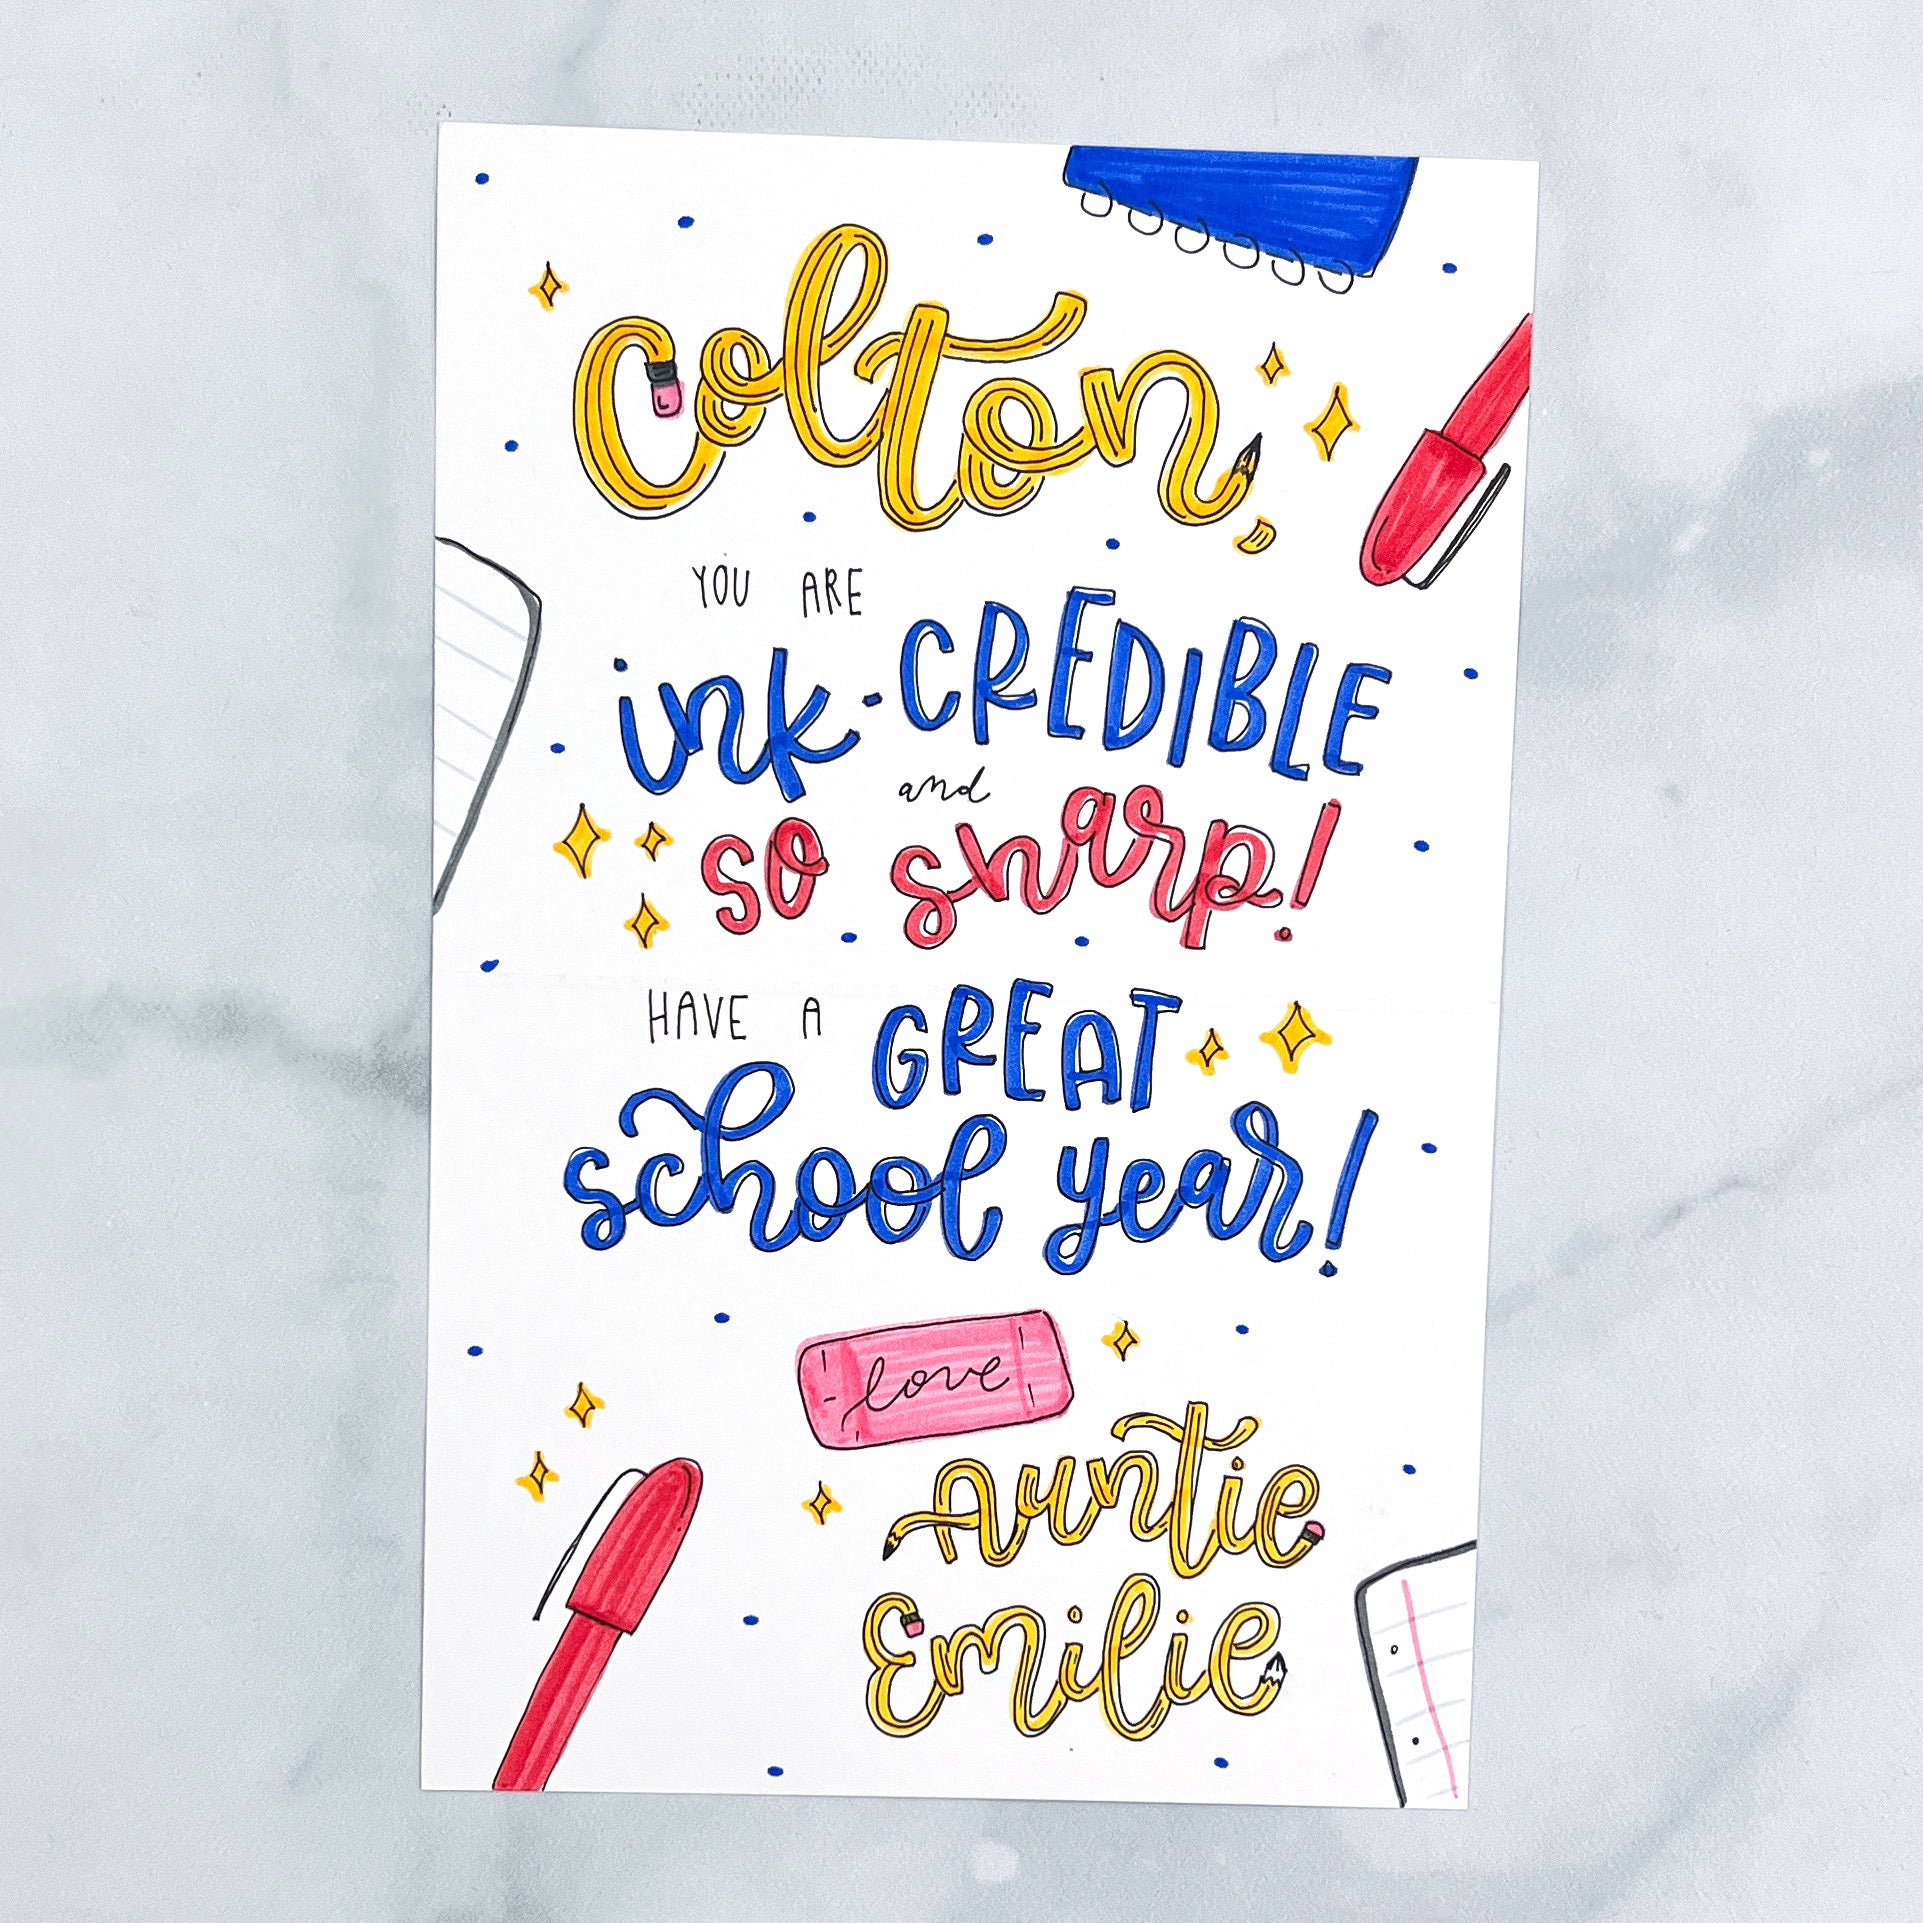 Colton,
YOU ARE
ink-CREDIBLE
and
so sharp!
HAVE A GREAT
school year!
love
Auntie
Emilie